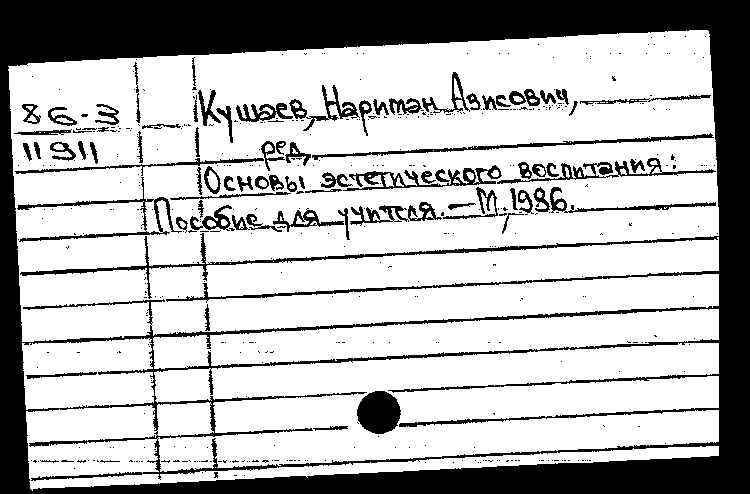 86-3
11911
Кушаев, Нариман Азисович,
ред.
Основы эстетического воспитания:
Пособие для учителя. — М., 1986.